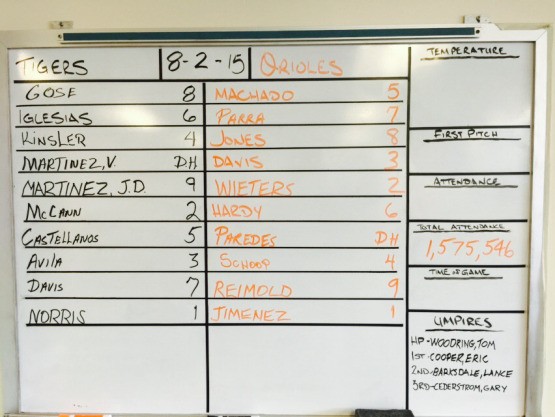 TIGERS 8-2-15 ORIOLES
GOSE 8 MACHADO 5
IGLESIAS 6 PARRA 7
KINSLER 4 JONES 8
MARTINEZ, V. DH DAVIS 3
MARTINEZ, J.D. 9 WIETERS 2
McCANN 2 HARDY 6
CASTELLANOS 5 PAREDES DH
AVILA 3 SCHOOP 4
DAVIS 7 REIMOLD 9
NORRIS 1 JIMENEZ 1
TEMPERATURE
FIRST PITCH
ATTENDANCE
TOTAL ATTENDANCE
1,575,546
TIME OF GAME
UMPIRES
HP-WOODRING, TOM
1ST-COOPER, ERIC
2ND-BARKSDALE, LANCE
3RD-CEDERSTROM, GARY